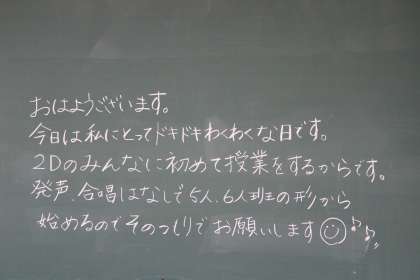 おはようございます。
今日は私にとってドキドキわくわくな日です。
2Dのみんなに初めて授業をするからです。
発声、合唱はなしで5人、6人班の形から
始めるのでそのつもりでお願いします